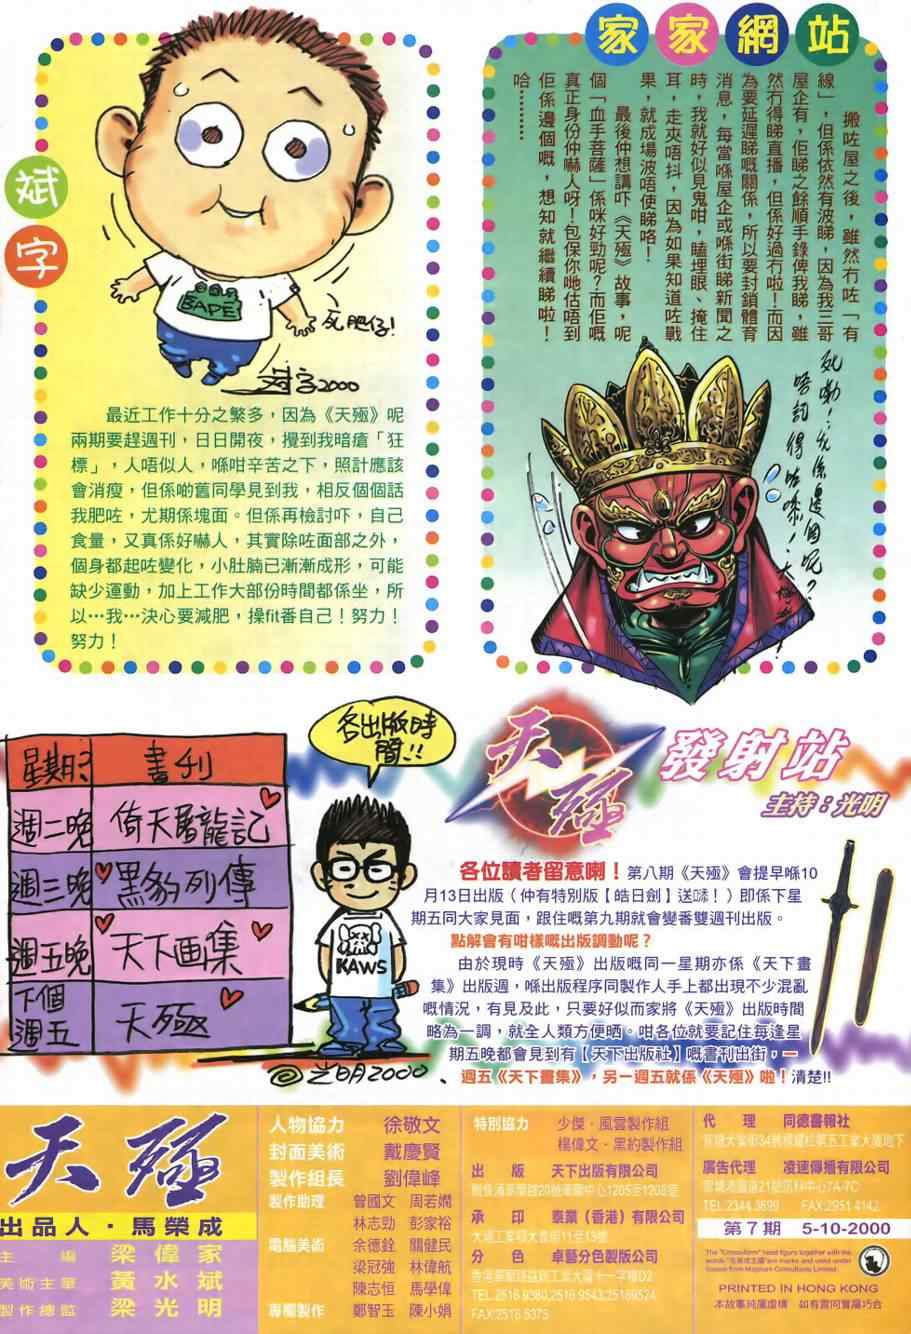 斌字
死肥仔!
2000
最近工作十分之繁多，因為《天殛》呢
兩期要趕週刊，日日開夜，攪到我暗瘡「狂
標」，人唔似人，喺咁辛苦之下，照計應該
會消瘦，但係啲舊同學見到我，相反個個話
我肥咗，尤期係塊面。但係再檢討吓，自己
食量，又真係好嚇人，其實除咗面部之外，
個身都起咗變化，小肚腩已漸漸成形，可能
缺少運動，加上工作大部份時間都係坐，所
以…我…決心要減肥，操fit番自己！努力！
努力！
家家網站
搬咗屋之後，雖然冇咗「有
線」，但係依然有波睇，因為我三哥
屋企有，佢睇之餘順手錄俾我睇，雖
然冇得睇直播，但係好過冇啦！而因
為要延遲睇嘅關係，所以要封鎖體育
消息，每當喺屋企或喺街睇新聞之
時，我就好似見鬼咁，瞌埋眼、掩住
耳，走夾唔抖，因為如果知道咗戰
果，就成場波唔使睇咯！
最後仲想講吓《天殛》故事，呢
個「血手菩薩」係咪好勁呢？而佢嘅
真正身份仲嚇人呀！包保你哋估唔到
佢係邊個嘅，想知就繼續睇啦！
哈………
死嘞!尤係邊個呢?
唔認得咗嚟!
各出版時
間!!
星期 書刊
週二晚 倚天屠龍記
週三晚 黑豹列傳
週五晚 天下画集
下個
週五 天殛
BAPE
KAWS
@光明2000
天殛
發射站
主持：光明
各位讀者留意喇！第八期《天殛》會提早喺10
月13日出版（仲有特別版【皓日劍】送㗎！）即係下星
期五同大家見面，跟住嘅第九期就會變番雙週刊出版。
點解會有咁樣嘅出版調動呢？
由於現時《天殛》出版嘅同一星期亦係《天下畫
集》出版週，喺出版程序同製作人手上都出現不少混亂
嘅情況，有見及此，只要好似而家將《天殛》出版時間
略為一調，就全人類方便晒。咁各位就要記住每逢星
期五晚都會見到有【天下出版社】嘅書刊出街，一
週五《天下畫集》，另一週五就係《天殛》啦！清楚!!
天殛
出品人・馬榮成
主編 梁偉家
美術主筆 黃水斌
製作總監 梁光明
人物協力 徐敬文
封面美術 戴慶賢
製作組長 劉偉峰
製作助理 曾國文 周若嫻
林志勁 彭家裕
電腦美術 余德銓 關健民
梁冠強 林偉航
陳志恒 馬學偉
專欄製作 鄭智玉 陳小娟
特別協力 少傑・風雲製作組
楊偉文・黑約製作組
出版 天下出版有限公司
承印 泰業（香港）有限公司
分色 卓藝分色製版公司
TEL:2516 9380,2516 9543,25169524
FAX:2516 5375
代理 同德書報社
廣告代理 凌速傳播有限公司
TEL:2344 3699 FAX:2951 4142
第7期 5-10-2000
PRINTED IN HONG KONG
本故事純屬虛構 如有雷同實屬巧合